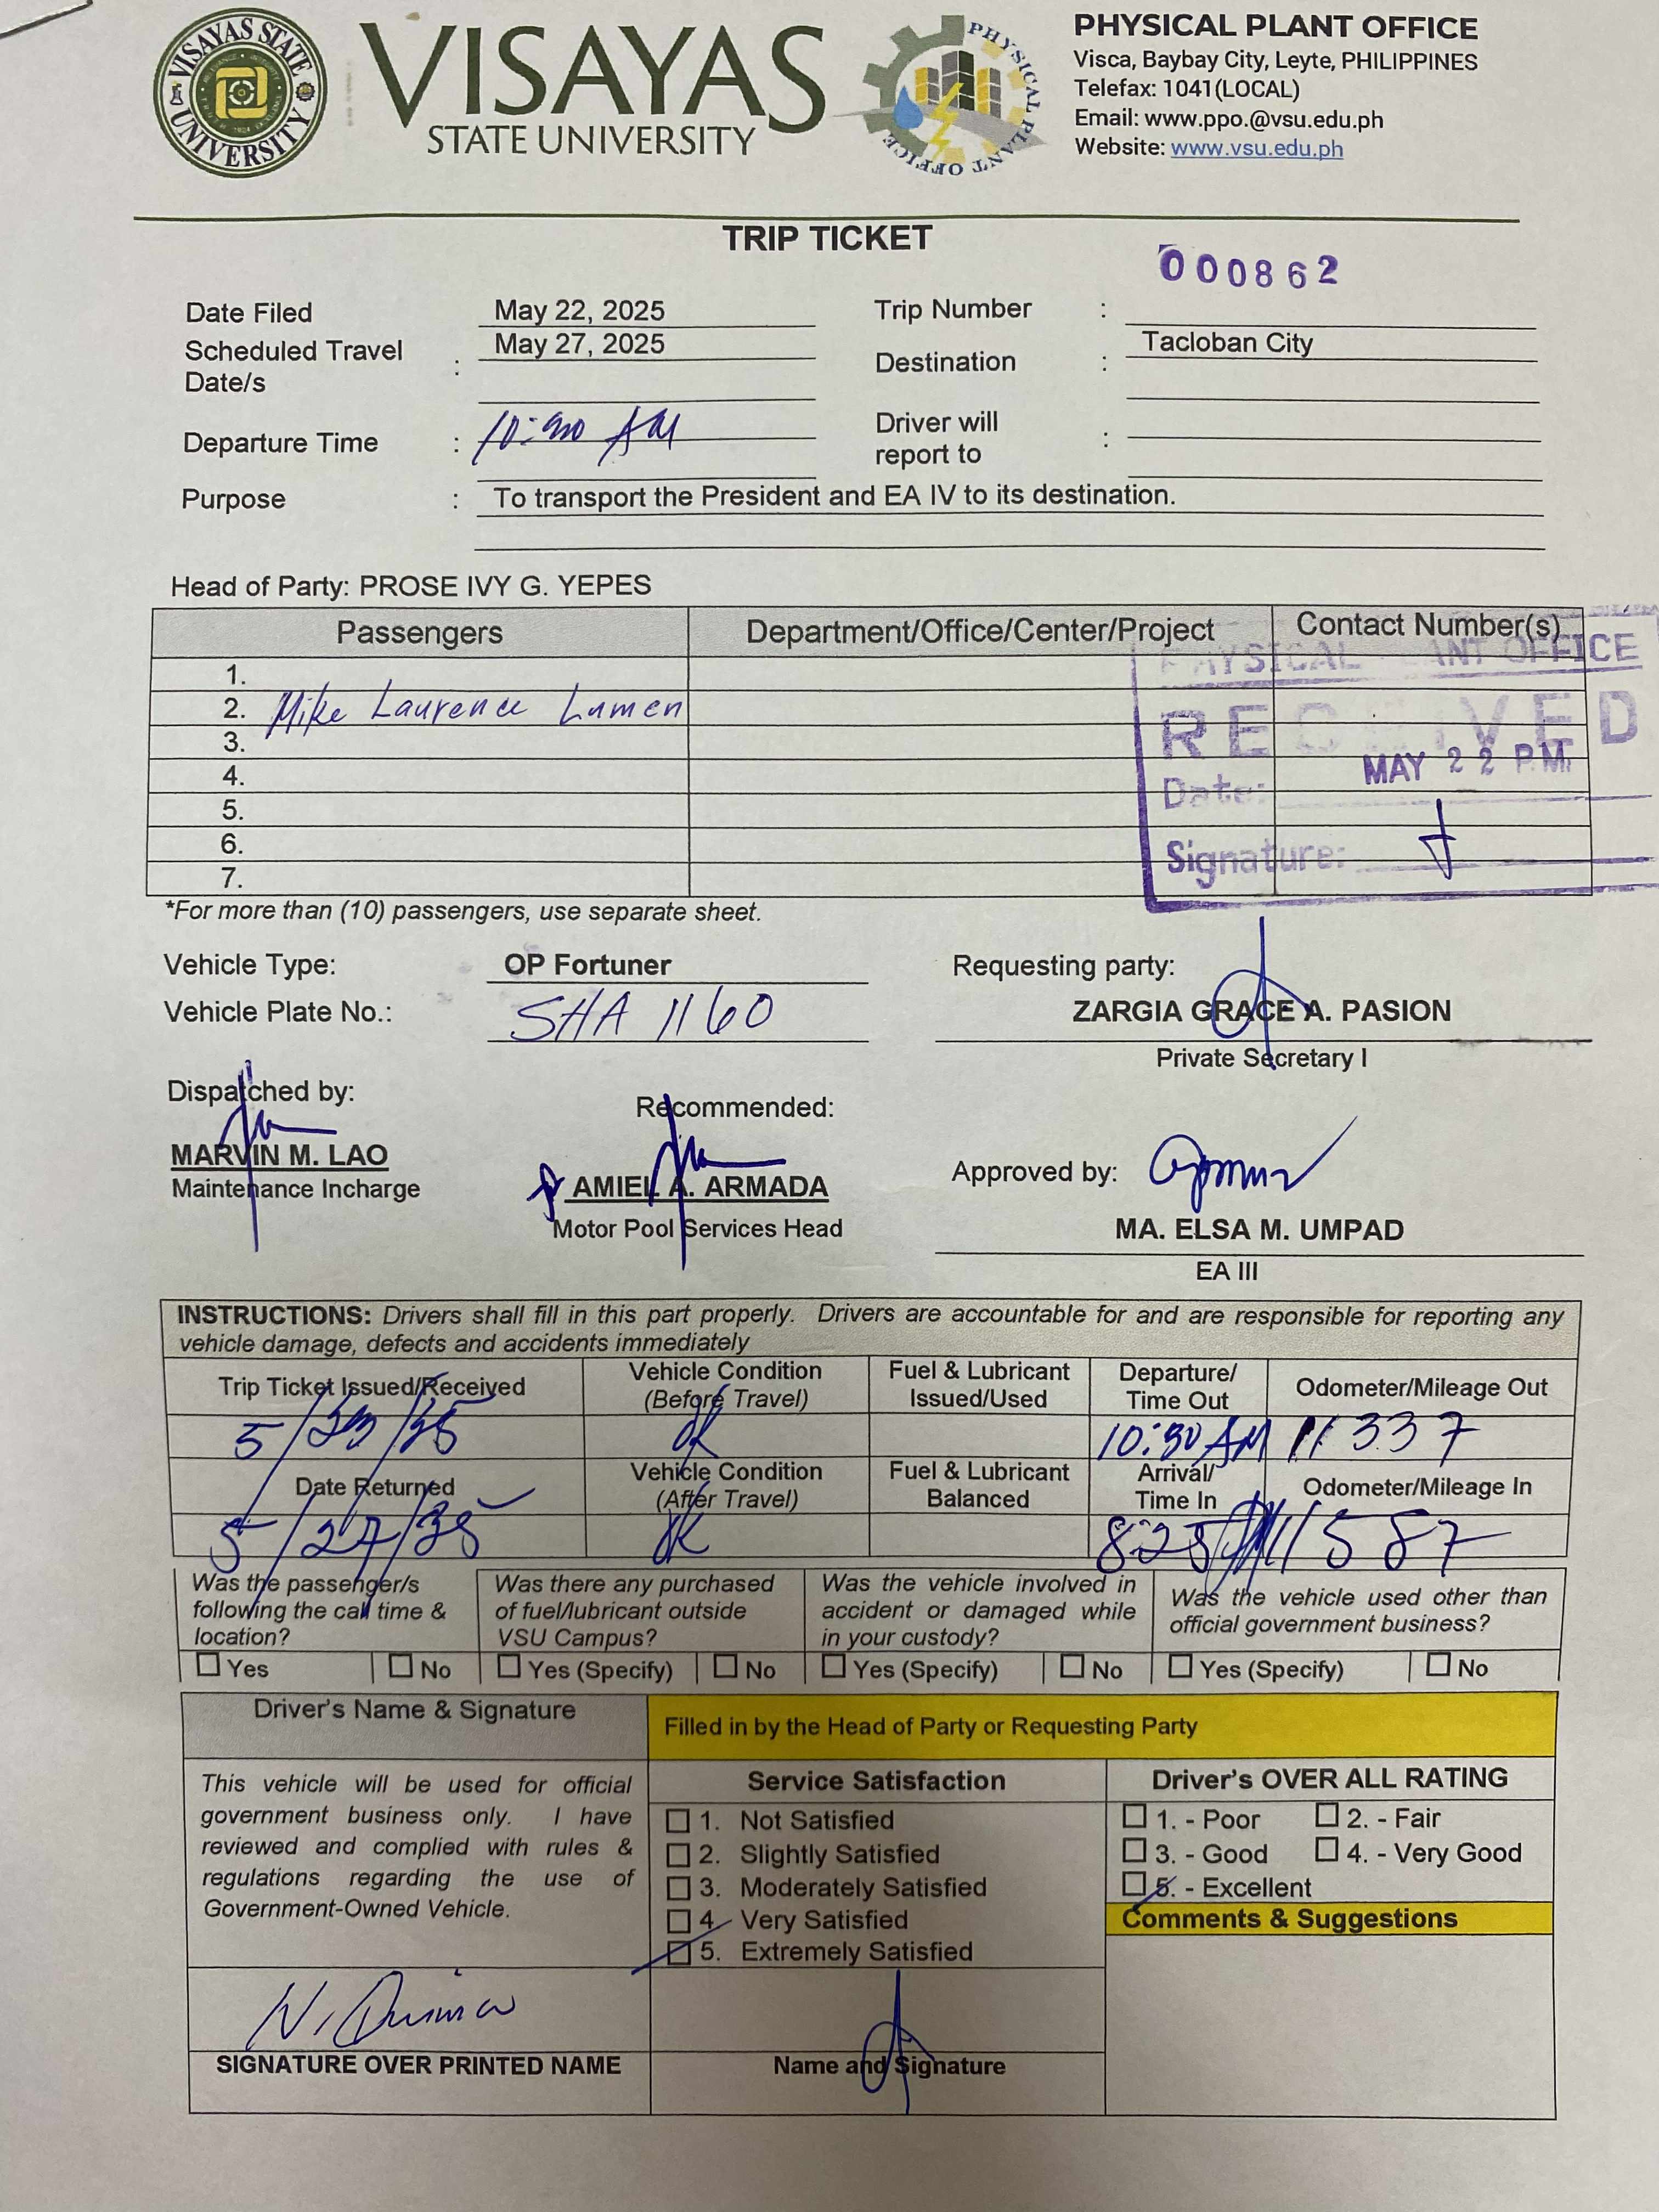 VISAYAS STATE UNIVERSITY
VISAYAS
STATE UNIVERSITY
PHYSICAL PLANT OFFICE
PHYSICAL PLANT OFFICE
Visca, Baybay City, Leyte, PHILIPPINES
Telefax: 1041(LOCAL)
Email: www.ppo.@vsu.edu.ph
Website: www.vsu.edu.ph
TRIP TICKET
000862
Date Filed May 22, 2025 Trip Number :
Scheduled Travel Date/s : May 27, 2025 Destination : Tacloban City
Departure Time : AM Driver will report to :
Purpose : To transport the President and EA IV to its destination.
Head of Party: PROSE IVY G. YEPES
Passengers Department/Office/Center/Project Contact Number(s)
1.
2. Mike Laurence Lumen
3.
4.
5.
6.
7.
PHYSICAL PLANT OFFICE
RECEIVED
Date: MAY 22 P.M.
Signature:
*For more than (10) passengers, use separate sheet.
Vehicle Type: OP Fortuner Requesting party:
Vehicle Plate No.: SHA 1160 ZARGIA GRACE A. PASION
Private Secretary I
Dispatched by: Recommended:
MARVIN M. LAO
Maintenance Incharge
AMIEL A. ARMADA
Motor Pool Services Head
Approved by:
MA. ELSA M. UMPAD
EA III
INSTRUCTIONS: Drivers shall fill in this part properly. Drivers are accountable for and are responsible for reporting any
vehicle damage, defects and accidents immediately
Trip Ticket Issued/Received Vehicle Condition (Before Travel) Fuel & Lubricant Issued/Used Departure/ Time Out Odometer/Mileage Out
OK 10:30 AM 11337
Date Returned Vehicle Condition (After Travel) Fuel & Lubricant Balanced Arrival/ Time In Odometer/Mileage In
OK 11587
Was the passenger/s following the call time & location?
Yes No
Was there any purchased of fuel/lubricant outside VSU Campus?
Yes (Specify) No
Was the vehicle involved in accident or damaged while in your custody?
Yes (Specify) No
Was the vehicle used other than official government business?
Yes (Specify) No
Driver's Name & Signature
Filled in by the Head of Party or Requesting Party
This vehicle will be used for official
government business only. I have
reviewed and complied with rules &
regulations regarding the use of
Government-Owned Vehicle.
Service Satisfaction
1. Not Satisfied
2. Slightly Satisfied
3. Moderately Satisfied
4. Very Satisfied
5. Extremely Satisfied
Driver's OVER ALL RATING
1. - Poor 2. - Fair
3. - Good 4. - Very Good
5. - Excellent
Comments & Suggestions
SIGNATURE OVER PRINTED NAME
Name and Signature